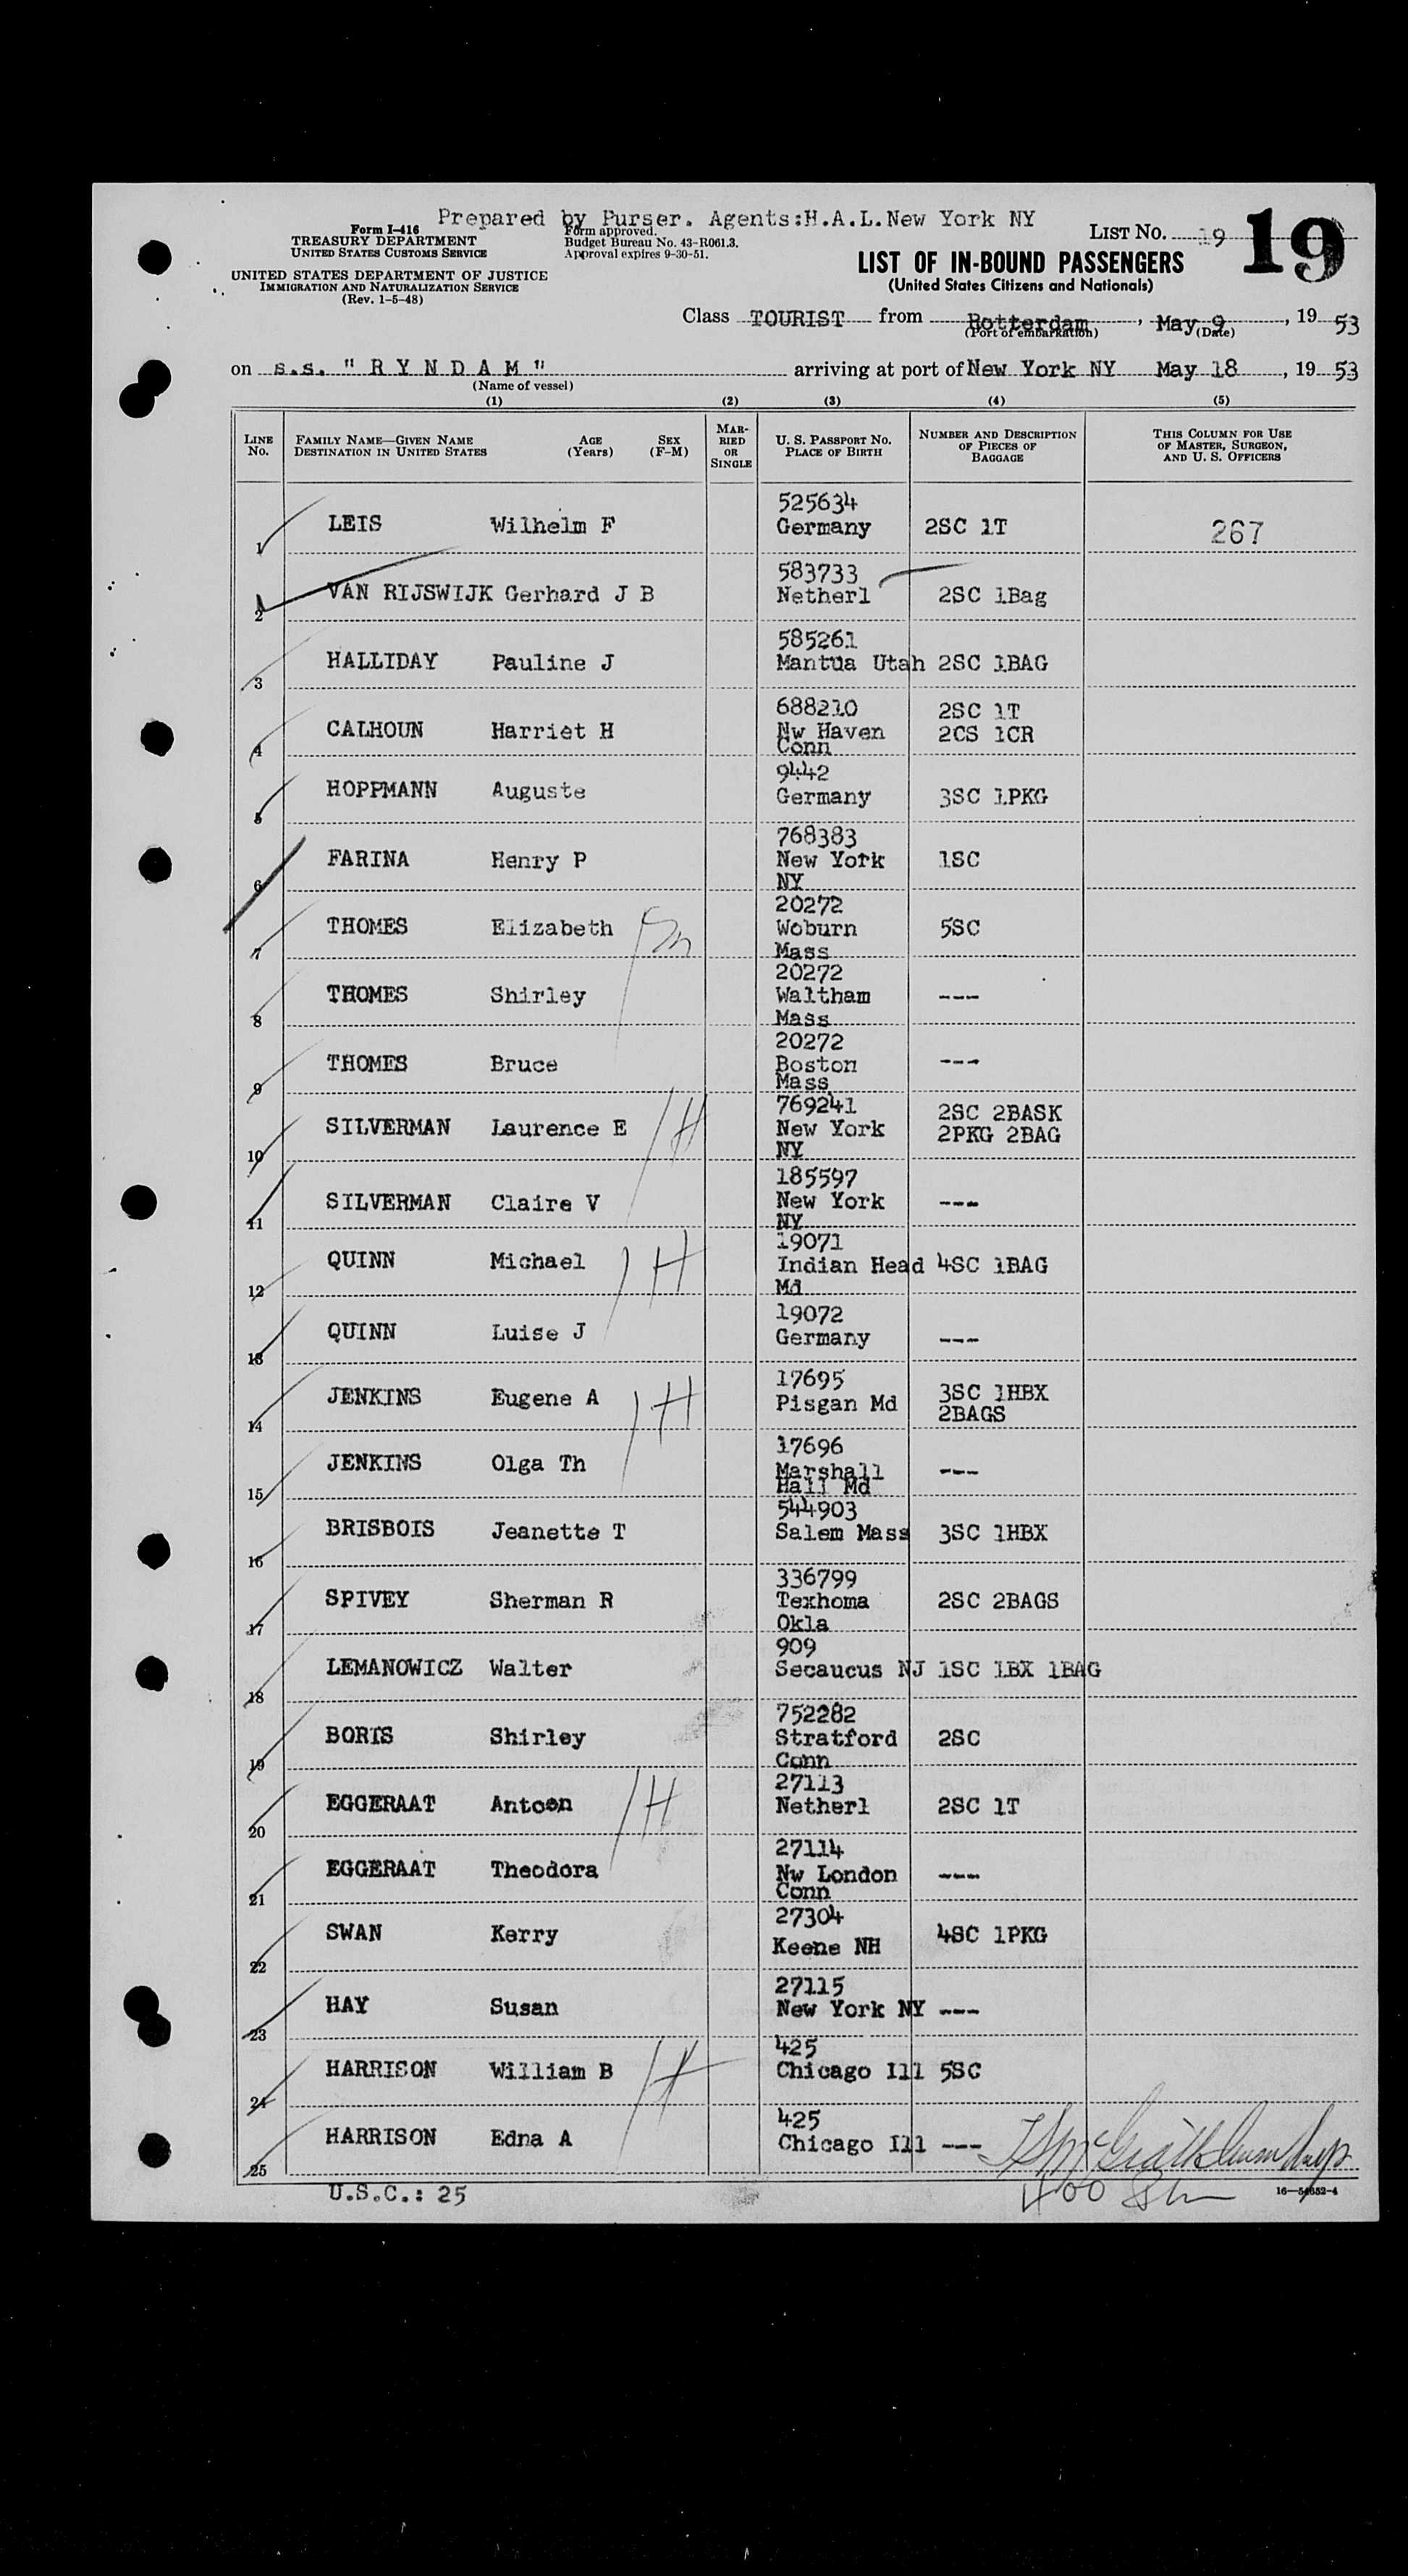 Prepared by Purser. Agents:H.A.L.New York NY
Form I-416
TREASURY DEPARTMENT
UNITED STATES CUSTOMS SERVICE
UNITED STATES DEPARTMENT OF JUSTICE
IMMIGRATION AND NATURALIZATION SERVICE
(Rev. 1-5-48)
Form approved.
Budget Bureau No. 43-R061.3.
Approval expires 9-30-51.
LIST No. 19 19
LIST OF IN-BOUND PASSENGERS
(United States Citizens and Nationals)
Class TOURIST from Rotterdam, May 9, 19 53
(Port of embarkation) (Date)
on s.s. "RYNDAM" arriving at port of New York NY May 18, 19 53
(Name of vessel)
(1) (2) (3) (4) (5)
LINE No. FAMILY NAME—GIVEN NAME DESTINATION IN UNITED STATES AGE (Years) SEX (F-M) MARRIED OR SINGLE U. S. PASSPORT NO. PLACE OF BIRTH NUMBER AND DESCRIPTION OF PIECES OF BAGGAGE THIS COLUMN FOR USE OF MASTER, SURGEON, AND U. S. OFFICERS
525634
1 LEIS Wilhelm F Germany 2SC 1T 267
583733
2 VAN RIJSWIJK Gerhard J B Netherl 2SC 1Bag
585261
3 HALLIDAY Pauline J Mantua Utah 2SC 1BAG
688210 2SC 1T
4 CALHOUN Harriet H Nw Haven 2CS 1CR
Conn
9442
5 HOPPMANN Auguste Germany 3SC 1PKG
768383
6 FARINA Henry P New York 1SC
NY
20272
7 THOMES Elizabeth Woburn 5SC
Mass
20272
8 THOMES Shirley Waltham ---
Mass
20272
9 THOMES Bruce Boston ---
Mass
769241 2SC 2BASK
10 SILVERMAN Laurence E New York 2PKG 2BAG
NY
185597
11 SILVERMAN Claire V New York ---
NY
19071
12 QUINN Michael Indian Head 4SC 1BAG
Md
19072
13 QUINN Luise J Germany ---
17695 3SC 1HBX
14 JENKINS Eugene A Pisgan Md 2BAGS
17696
15 JENKINS Olga Th Marshall ---
Hall Md
544903
16 BRISBOIS Jeanette T Salem Mass 3SC 1HBX
336799
17 SPIVEY Sherman R Texhoma 2SC 2BAGS
Okla
909
18 LEMANOWICZ Walter Secaucus NJ 1SC 1BX 1BAG
752282
19 BORIS Shirley Stratford 2SC
Conn
27113
20 EGGERAAT Antoon Netherl 2SC 1T
27114
21 EGGERAAT Theodora Nw London ---
Conn
27304
22 SWAN Kerry Keene NH 4SC 1PKG
27115
23 HAY Susan New York NY ---
425
24 HARRISON William B Chicago Ill 5SC
425
25 HARRISON Edna A Chicago Ill ---
U.S.C.: 25